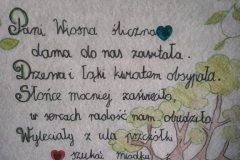 Pani Wiosna śliczna
dama do nas zawitała.
Drzewa i łąki kwiatem obsypała.
Słońce mocniej zaświeciło,
w sercach radość nam obudziło,
Wyleciały z ula pszczółki
szukać miodku